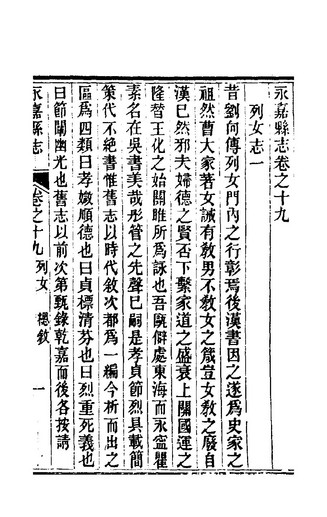 永嘉縣志卷之十九
列女志一
昔劉向傳列女門內之行彰焉後漢書因之遂爲史家之
祖然曹大家著女誡有敎男不敎女之箴豈女敎之廢自
漢已然邪夫婦德之賢否下繫家道之盛衰上關國運之
隆替王化之始關雎所爲詠也吾甌僻處東海而永甯瞿
素名在吳書美哉彤管之先聲已嗣是孝貞節烈具載簡
策代不絶書惟舊志以時代敘次都爲一編今析而出之
區爲四類曰孝媺順德也曰貞標清芬也曰烈重死義也
曰節闡幽光也舊志以前次第甄錄乾嘉而後各按請
永嘉縣志
卷之十九列女
總敘
一